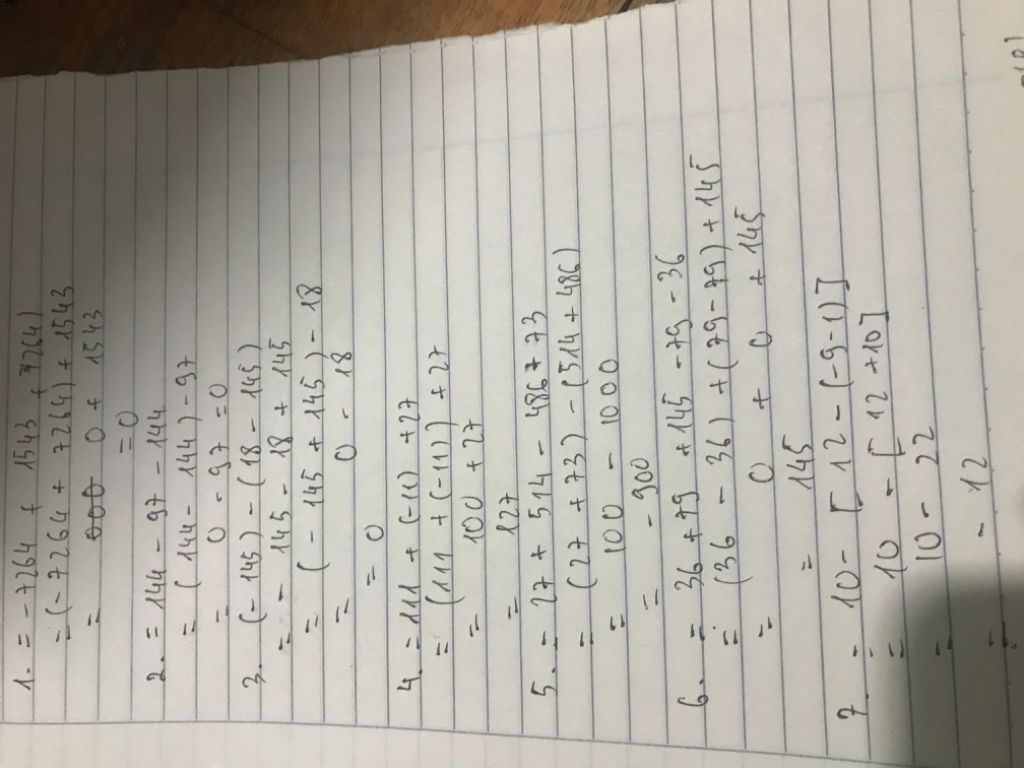 1. = -7264 + 1543 + 7264)
= (-7264 + 7264) + 1543
= 0 + 1543
= 0
2. = 144 - 97 - 144
= (144 - 144) - 97
= 0 - 97 = 0
3. (-145) - (18 - 145)
= - 145 - 18 + 145
= (- 145 + 145) - 18
= 0 - 18
= 0
4. = 111 + (-11) + 27
= (111 + (-11)) + 27
= 100 + 27
= 127
5. = 27 + 514 - 486 + 73
= (27 + 73) - (514 + 486)
= 100 - 1000
= - 900
6. = 36 + 79 + 145 - 79 - 36
= (36 - 36) + (79 - 79) + 145
= 0 + 0 + 145
= 145
7. = 10 - [12 - (-9 - 1)]
= 10 - [12 + 10]
= 10 - 22
= - 12
=